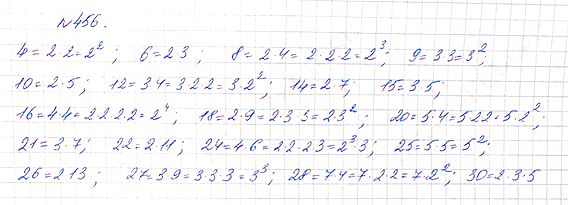 №456.
4=2·2=2²; 6=2·3; 8=2·4=2·2·2=2³; 9=3·3=3²;
10=2·5; 12=3·4=3·2·2=3·2²; 14=2·7; 15=3·5;
16=4·4=2·2·2·2=2⁴; 18=2·9=2·3·3=2·3²; 20=5·4=5·2·2=5·2²;
21=3·7; 22=2·11; 24=4·6=2·2·2·3=2³·3; 25=5·5=5²;
26=2·13; 27=3·9=3·3·3=3³; 28=7·4=7·2·2=7·2²; 30=2·3·5